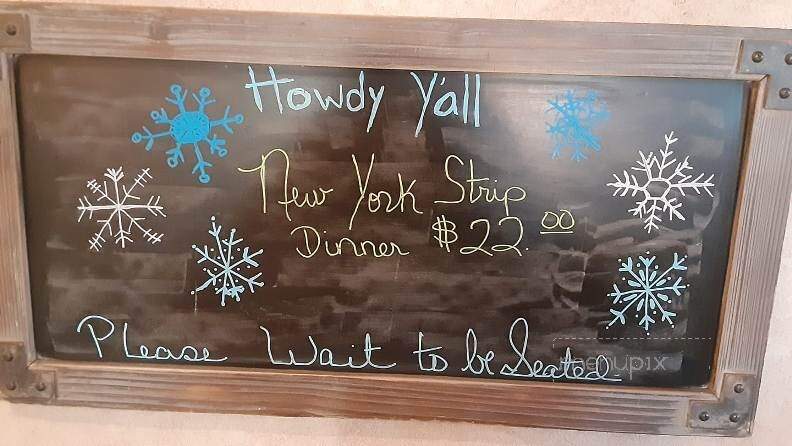 Howdy Y'all
New York Strip
Dinner $22.00
Please Wait to be Seated.
menupix